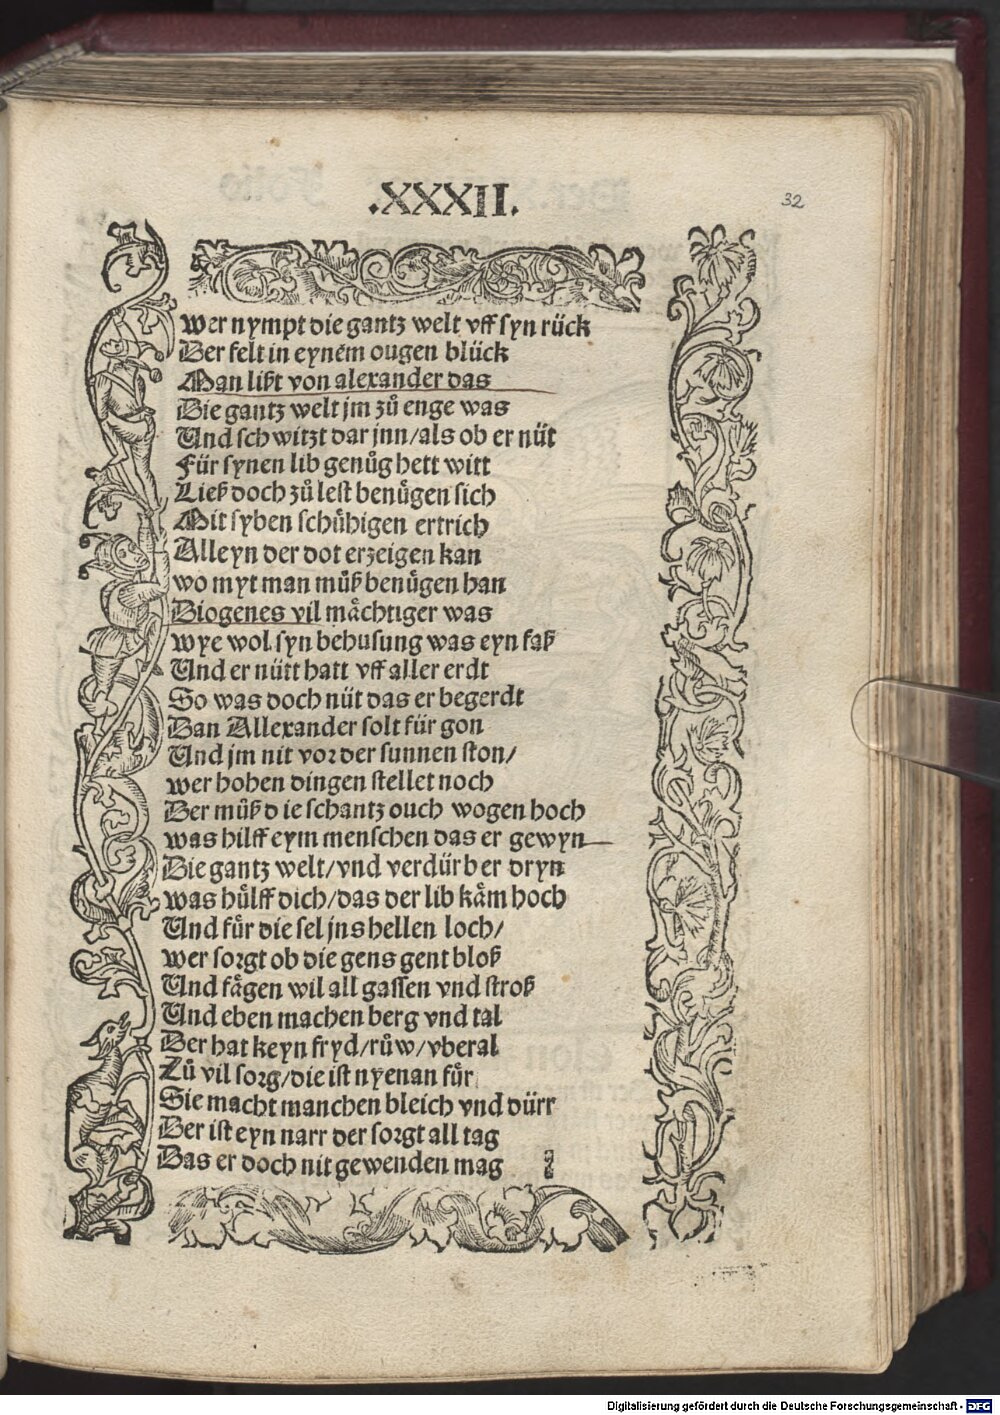 .XXXII.
32
Wer nympt die gantz welt vff syn rück
Der felt in eynem ougen blück
Man lißt von alexander das
Die gantz welt jm zů enge was
Und schwitzt dar jnn/als ob er nüt
Für synen lib genůg hett witt
Ließ doch zů lest benůgen sich
Mit syben schůhigen ertrich
Alleyn der dot erzeigen kan
wo myt man můß benůgen han
Diogenes vil mächtiger was
wye wol syn behusung was eyn faß
Und er nütt hatt vff aller erdt
So was doch nüt das er begerdt
Dan Allexander solt für gon
Und jm nit vor der sunnen ston/
wer hohen dingen stellet noch
Der můß die schantz ouch wogen hoch
was hilff eym menschen das er gewyn
Die gantz welt/vnd verdürb er dryn
was hülff dich/das der lib käm hoch
Und für die sel jns hellen loch/
wer sorgt ob die gens gent bloß
Und fägen wil all gassen vnd stroß
Und eben machen berg vnd tal
Der hat keyn fryd/růw/vberal
Zů vil sorg/die ist nyenan für
Sie macht manchen bleich vnd dürr
Der ist eyn narr der sorgt all tag
Das er doch nit gewenden mag
Digitalisierung gefördert durch die Deutsche Forschungsgemeinschaft - DFG